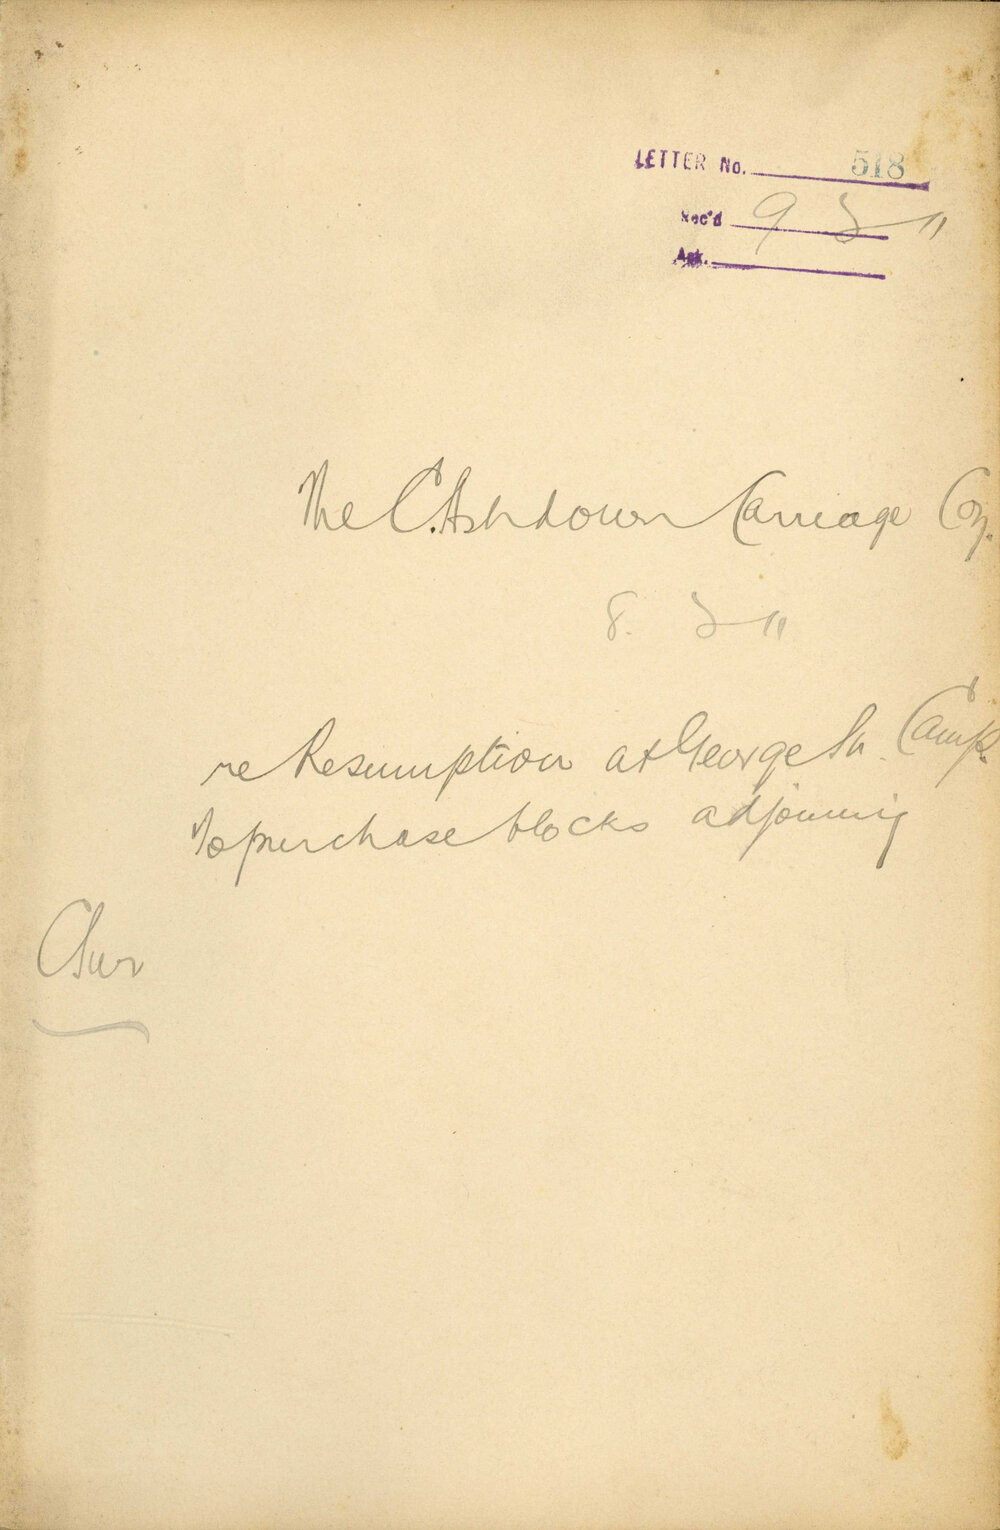 LETTER No. 518
Rec'd 9 3 11
Ack.
The C. Ashdown Carriage Coy.
8. 3 11
re Resumption at George St. Camp.
to purchase blocks adjoining